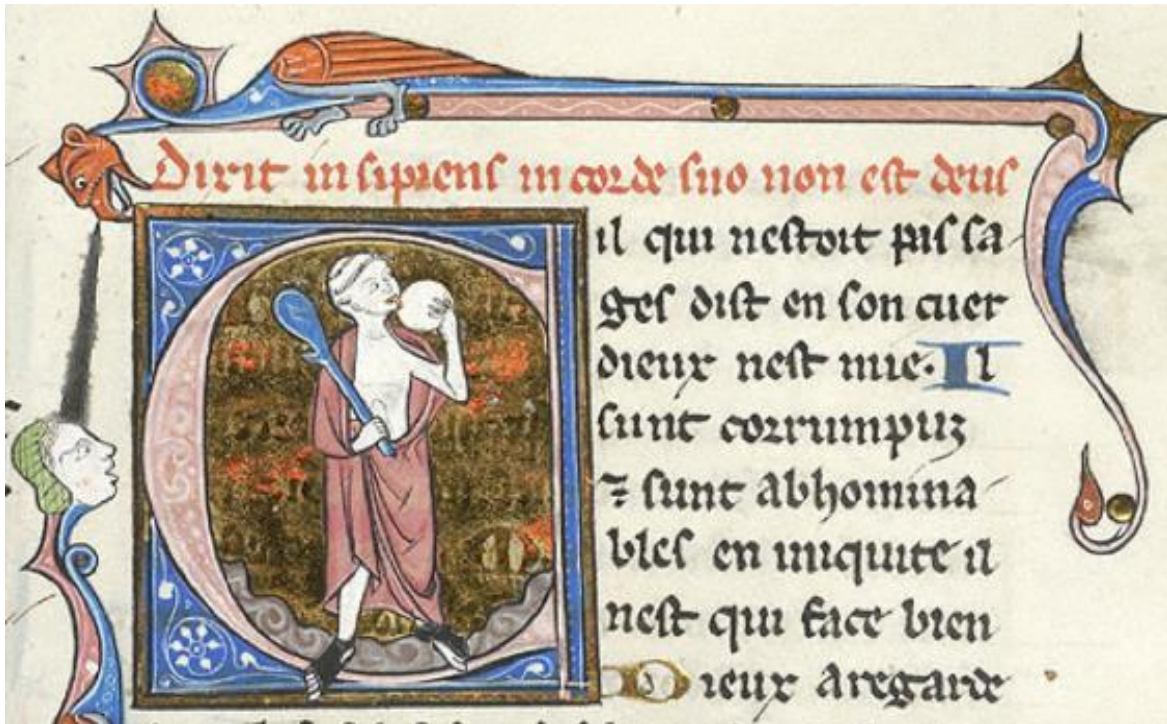 Dixit insipiens in corde suo non est deus
Cil qui nestoit pas sa
ges dist en son cuer
dieux nest mie. Il
sunt corrumpuz
⁊ sunt abhomina
bles en iniquite il
nest qui face bien
Dieux a regarde